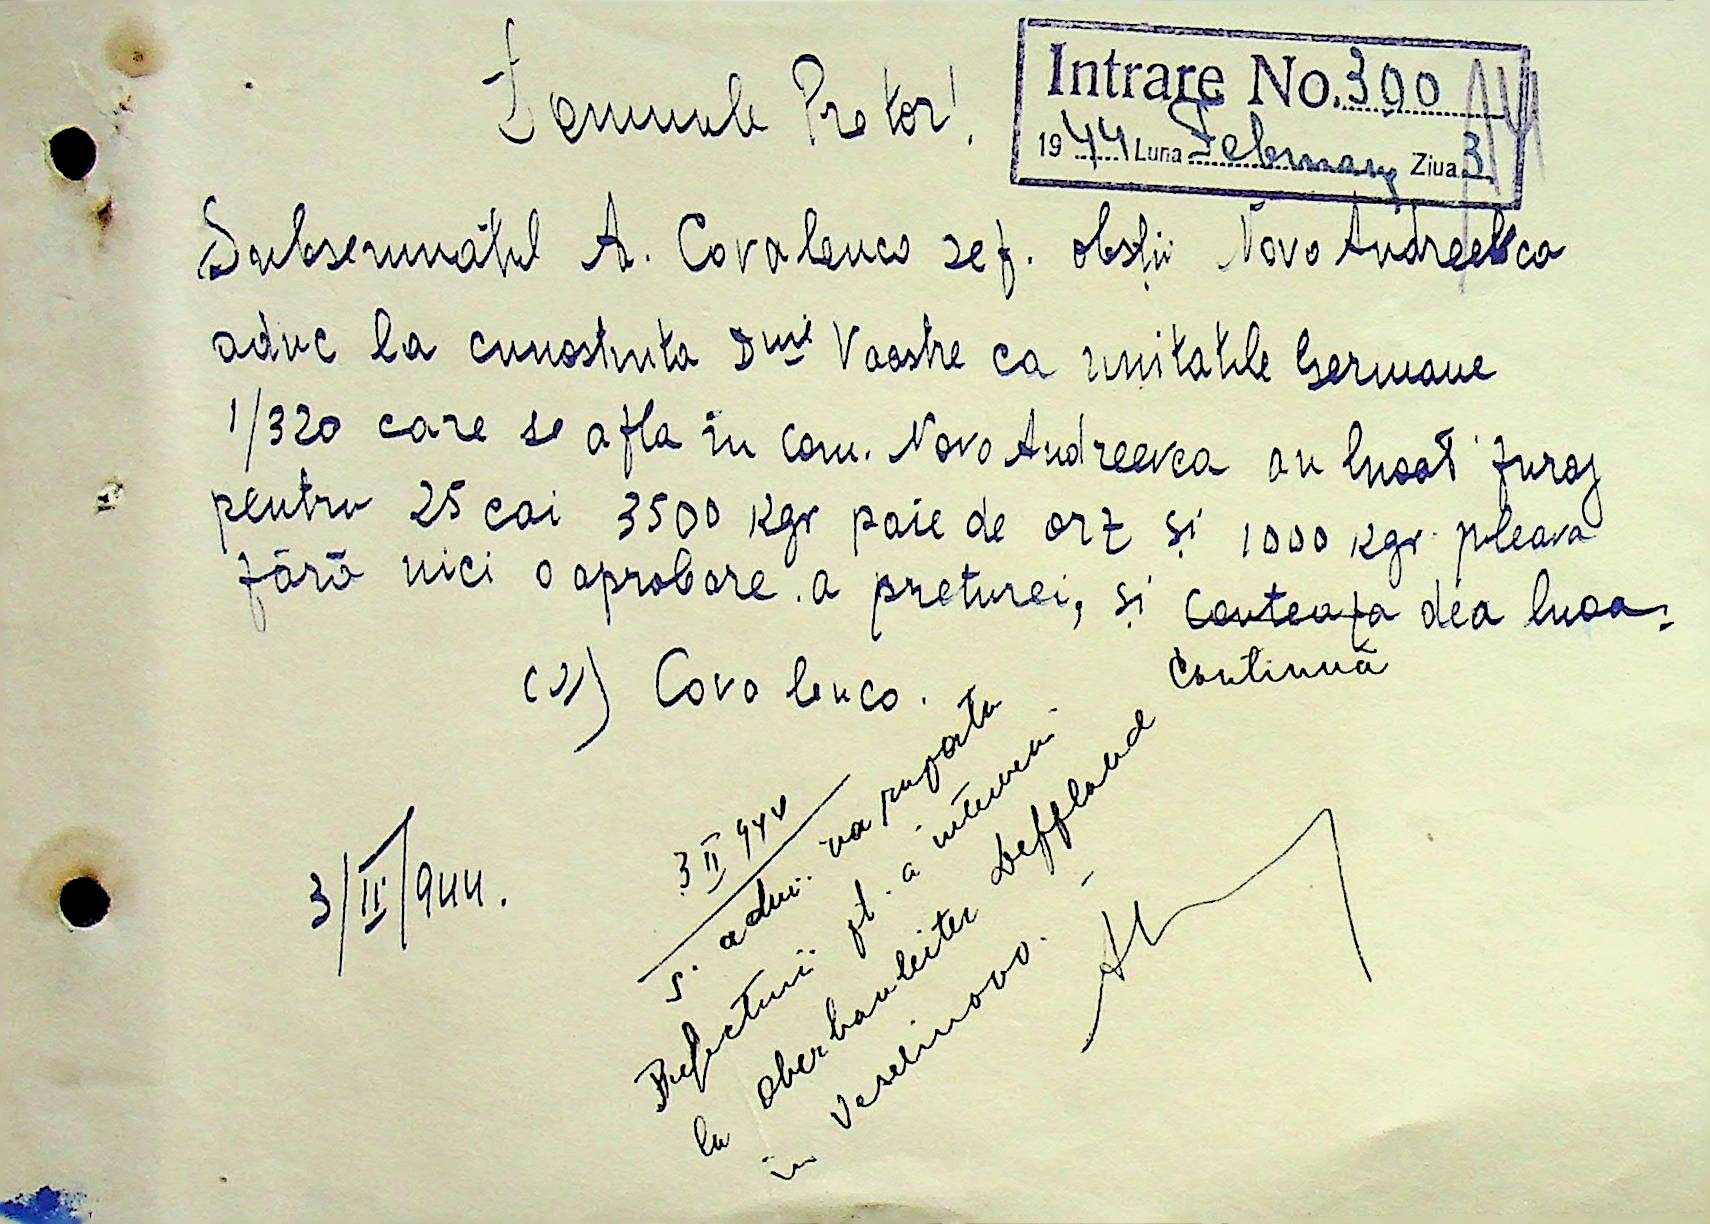 Domnule Pretor!
Intrare No. 390
1944 Luna Februarie Ziua 3
Subsemnatul A. Covalenco șef. obștii Novo Andreevca
aduc la cunostinta Dmii Vaostre ca unitatile Germane
1/320 care se afla în com. Novo Andreevca au luoat furaj
pentru 25 cai 3500 kgr paie de orz și 1000 kgr. pleava
fără nici o aprobare a preturei, și conteaza dea luoa.
continuă
(ss) Covalenco.
3/II/944.
3 II 944
S. adm. va raporta
Prefecturii pt. a interveni
la Oberbauleiter Deffland
in Veselinovo.